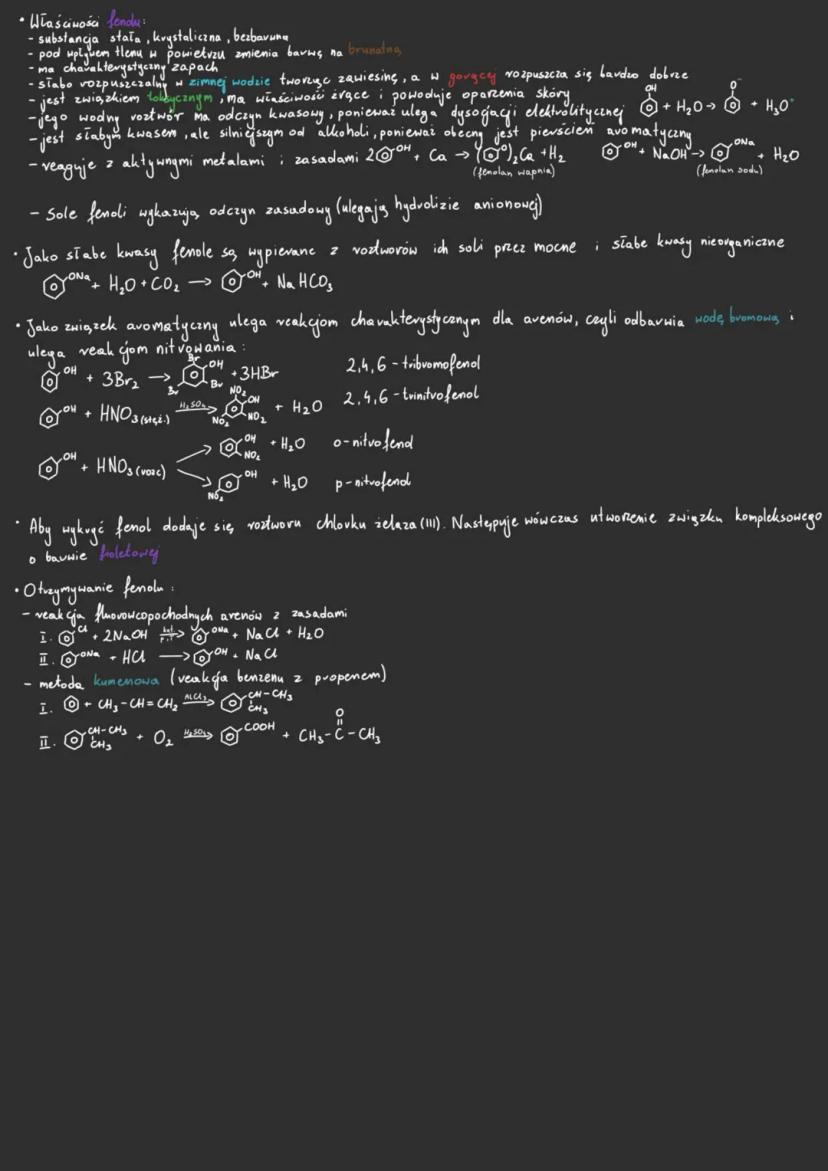 • Właściwości fenolu:
- substancja stała, krystaliczna, bezbarwna
- pod wpływem tlenu w powietrzu zmienia barwę na brunatną
- ma charakterystyczny zapach
- słabo rozpuszczalny w zimnej wodzie tworząc zawiesinę, a w gorącej rozpuszcza się bardzo dobrze
- jest związkiem toksycznym, ma właściwość żrące i powoduje oparzenia skóry
- jego wodny roztwór ma odczyn kwasowy, ponieważ ulega dysocjacji elektrolitycznej OH + H₂O → O⁻ + H₃O⁺
- jest słabym kwasem, ale silniejszym od alkoholi, ponieważ obecny jest pierścień aromatyczny
- reaguje z aktywnymi metalami i zasadami 2 OH + Ca → ( O)₂Ca + H₂ OH + NaOH → ONa + H₂O
(fenolan wapnia) (fenolan sodu)
- Sole fenoli wykazują odczyn zasadowy (ulegają hydrolizie anionowej)
• Jako słabe kwasy fenole są wypierane z roztworów ich soli przez mocne i słabe kwasy nieorganiczne
ONa + H₂O + CO₂ → OH + NaHCO₃
• Jako związek aromatyczny ulega reakcjom charakterystycznym dla arenów, czyli odbarwia wodę bromową i
ulega reakcjom nitrowania:
OH + 3Br₂ → Br OH Br Br + 3HBr 2,4,6-tribromofenol
OH + HNO₃(stęż.) H₂SO₄→ NO₂ OH NO₂ NO₂ + H₂O 2,4,6-trinitrofenol
OH + HNO₃(rozc) → OH NO₂ + H₂O o-nitrofenol
→ OH NO₂ + H₂O p-nitrofenol
• Aby wykryć fenol dodaje się roztworu chlorku żelaza (III). Następuje wówczas utworzenie związku kompleksowego
o barwie fioletowej
• Otrzymywanie fenolu:
- reakcja fluorowcopochodnych arenów z zasadami
I. Cl + 2NaOH kat. p,T→ ONa + NaCl + H₂O
II. ONa + HCl → OH + NaCl
- metoda kumenowa (reakcja benzenu z propenem)
I. + CH₃-CH=CH₂ AlCl₃→ CH-CH₃ CH₃
II. CH-CH₃ CH₃ + O₂ H₂SO₄→ COOH + CH₃-C-CH₃ O